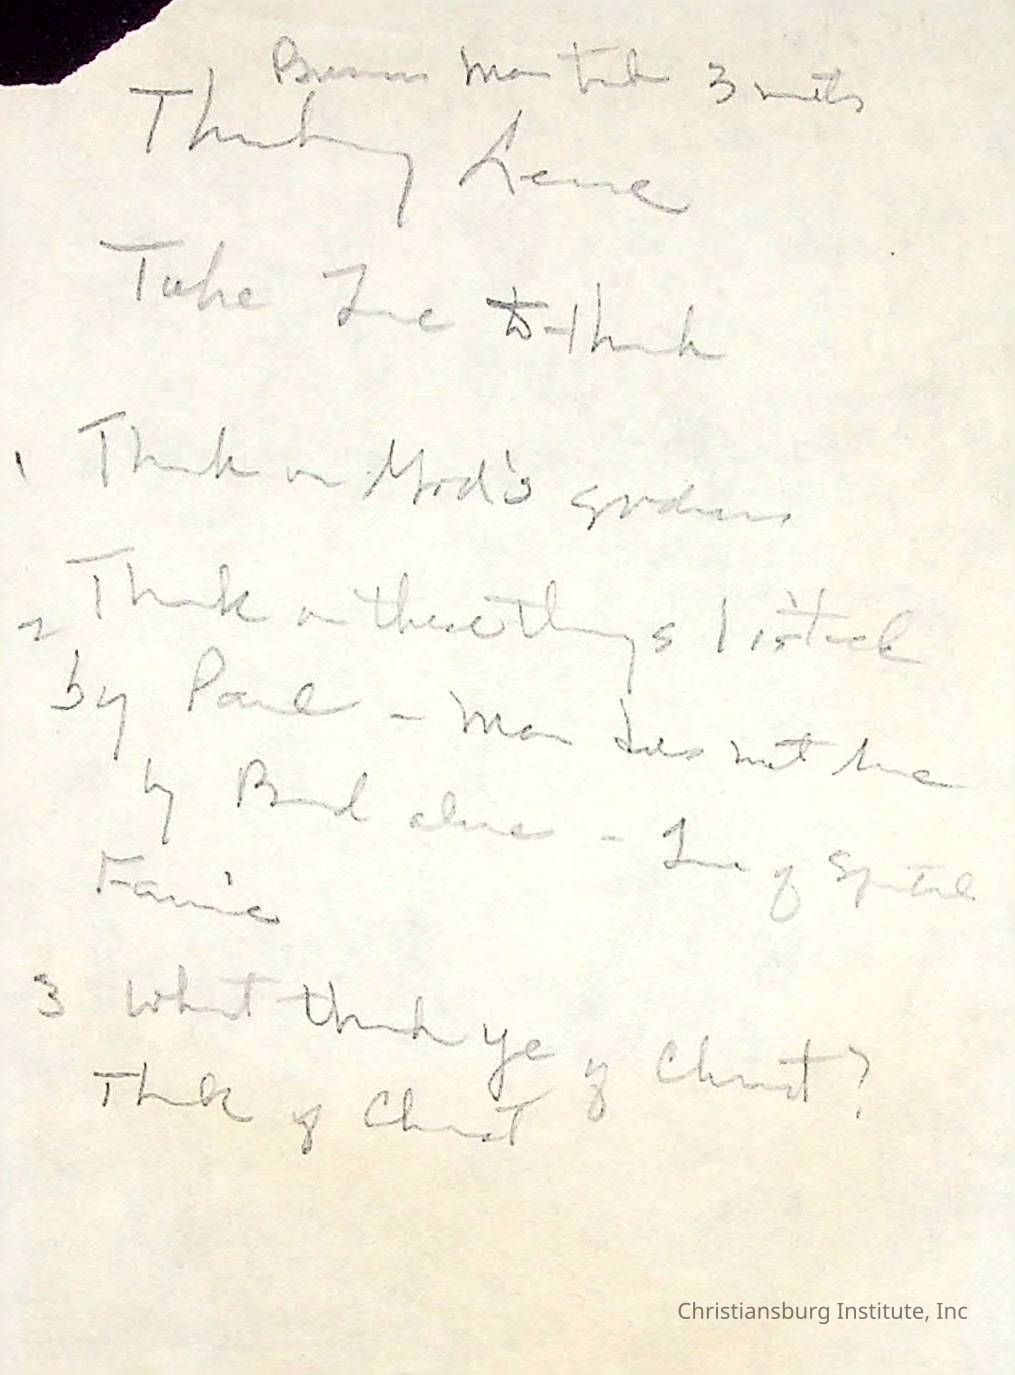 Business Man took 3 months
Thinking Leave
Take Time to think
1 Think on God's goodness
Think on these things listed
2
by Paul - Man does not live
by Bread alone - Time of Spiritual
Famine
3 What think ye of Christ?
Think of Christ
Christiansburg Institute, Inc